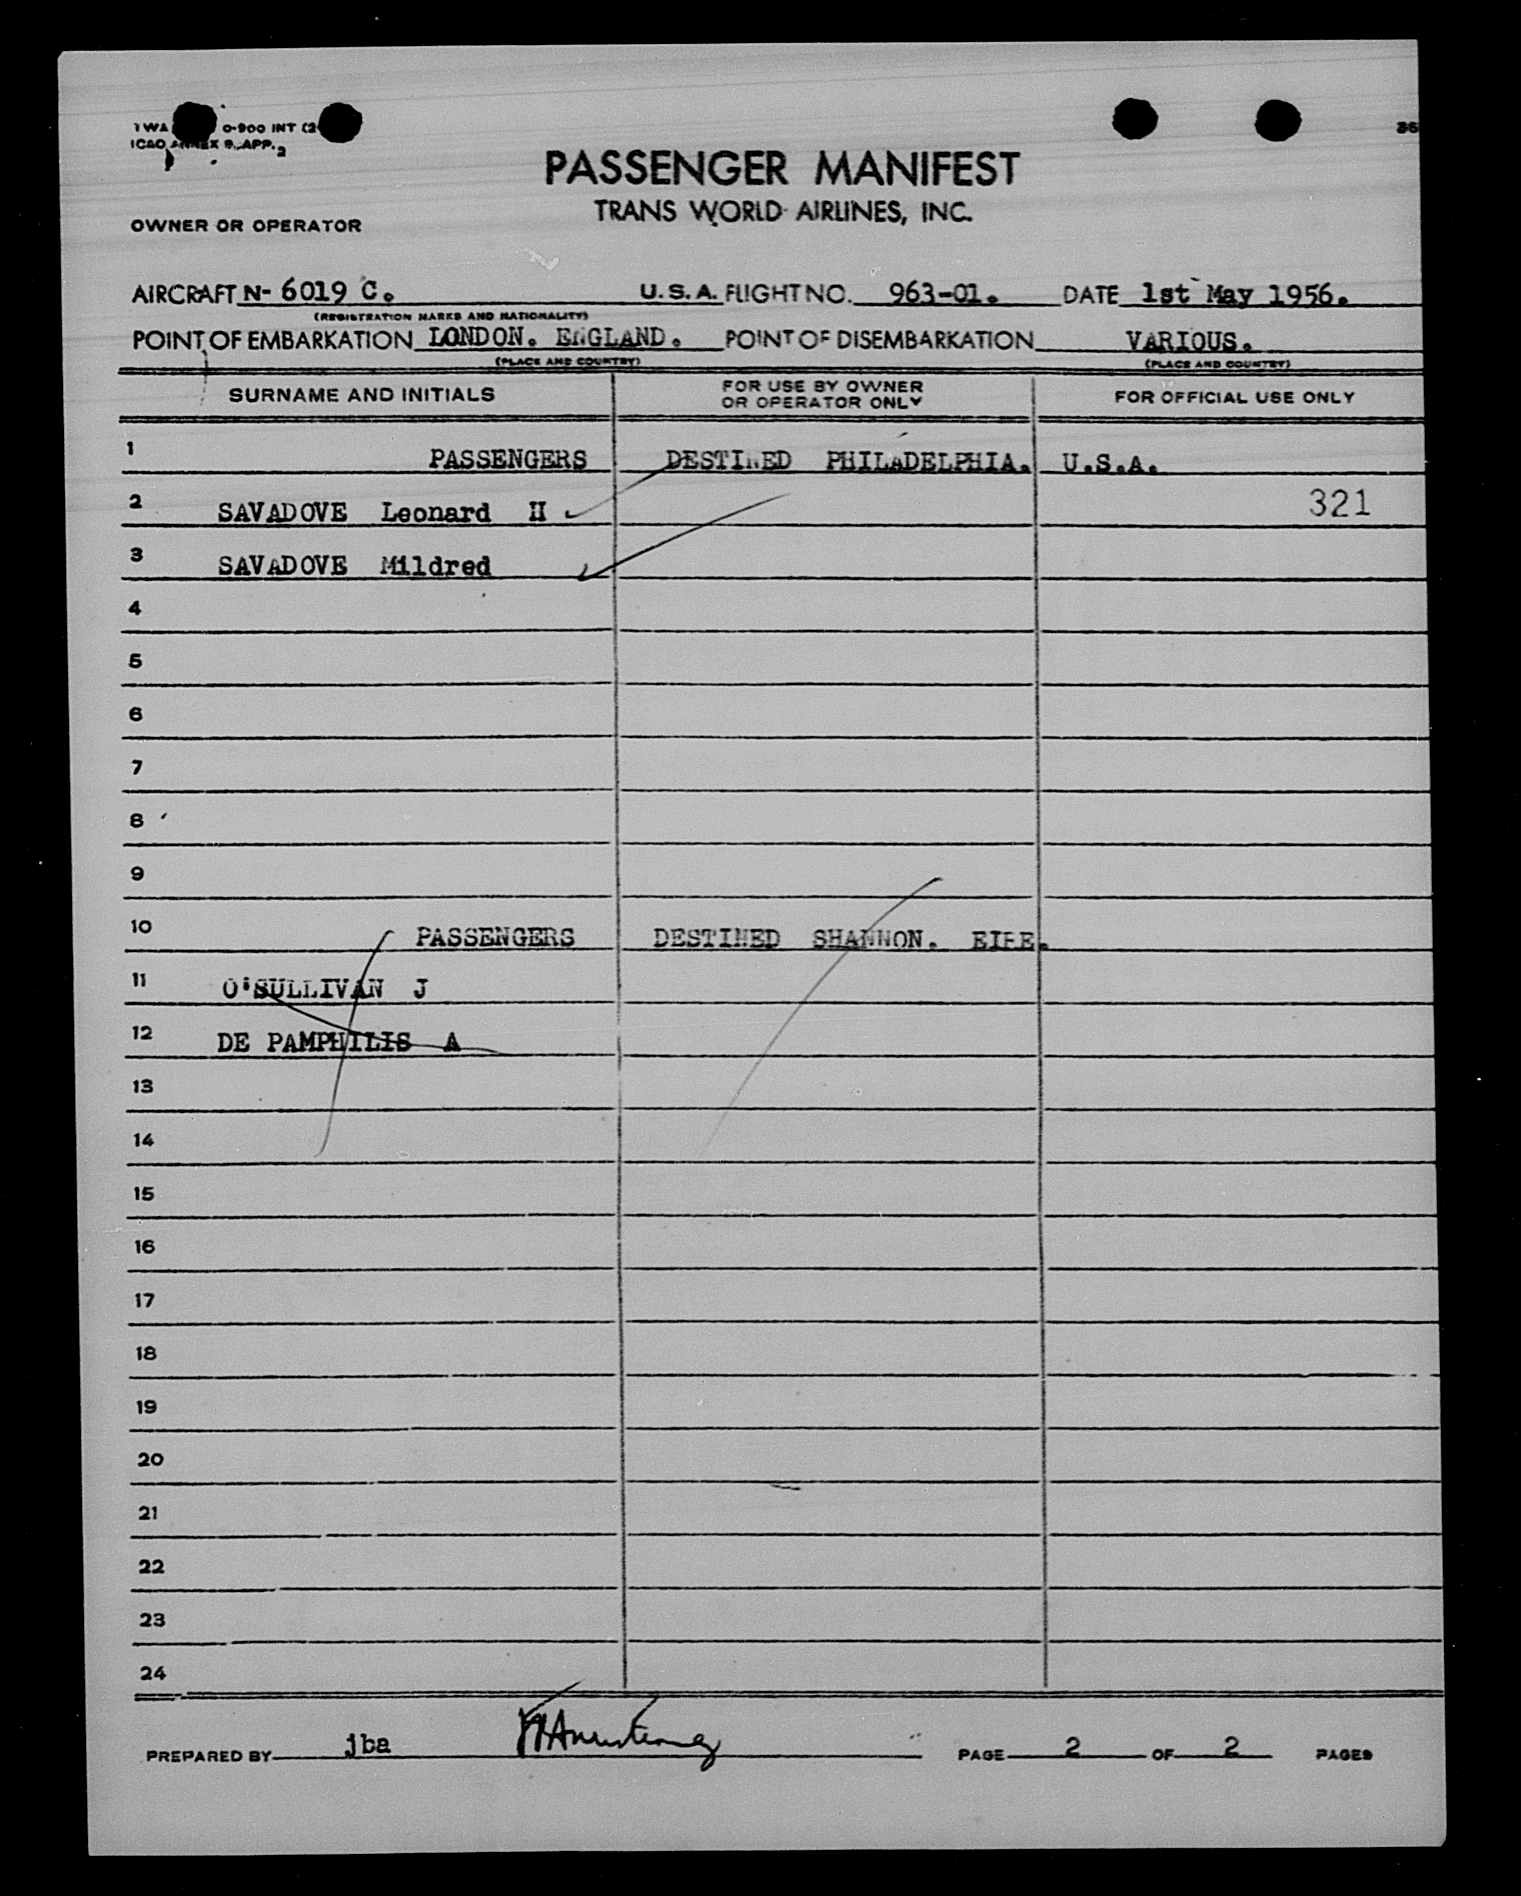 TWA 0-900 INT (2
ICAO ANNEX 9, APP. 2
36
PASSENGER MANIFEST
TRANS WORLD AIRLINES, INC.
OWNER OR OPERATOR
AIRCRAFT N- 6019 C. U.S.A. FLIGHT NO. 963-01. DATE 1st May 1956.
(REGISTRATION MARKS AND NATIONALITY)
POINT OF EMBARKATION LONDON. ENGLAND. POINT OF DISEMBARKATION VARIOUS.
(PLACE AND COUNTRY) (PLACE AND COUNTRY)
SURNAME AND INITIALS FOR USE BY OWNER OR OPERATOR ONLY FOR OFFICIAL USE ONLY
1 PASSENGERS DESTINED PHILADELPHIA. U.S.A.
2 SAVADOVE Leonard H 321
3 SAVADOVE Mildred
4
5
6
7
8
9
10 PASSENGERS DESTINED SHANNON. EIRE.
11 O'SULLIVAN J
12 DE PAMPHILIS A
13
14
15
16
17
18
19
20
21
22
23
24
PREPARED BY jba Armstrong PAGE 2 OF 2 PAGES